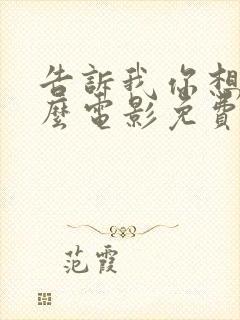 告訴我 你想
麼電影免費
范霞